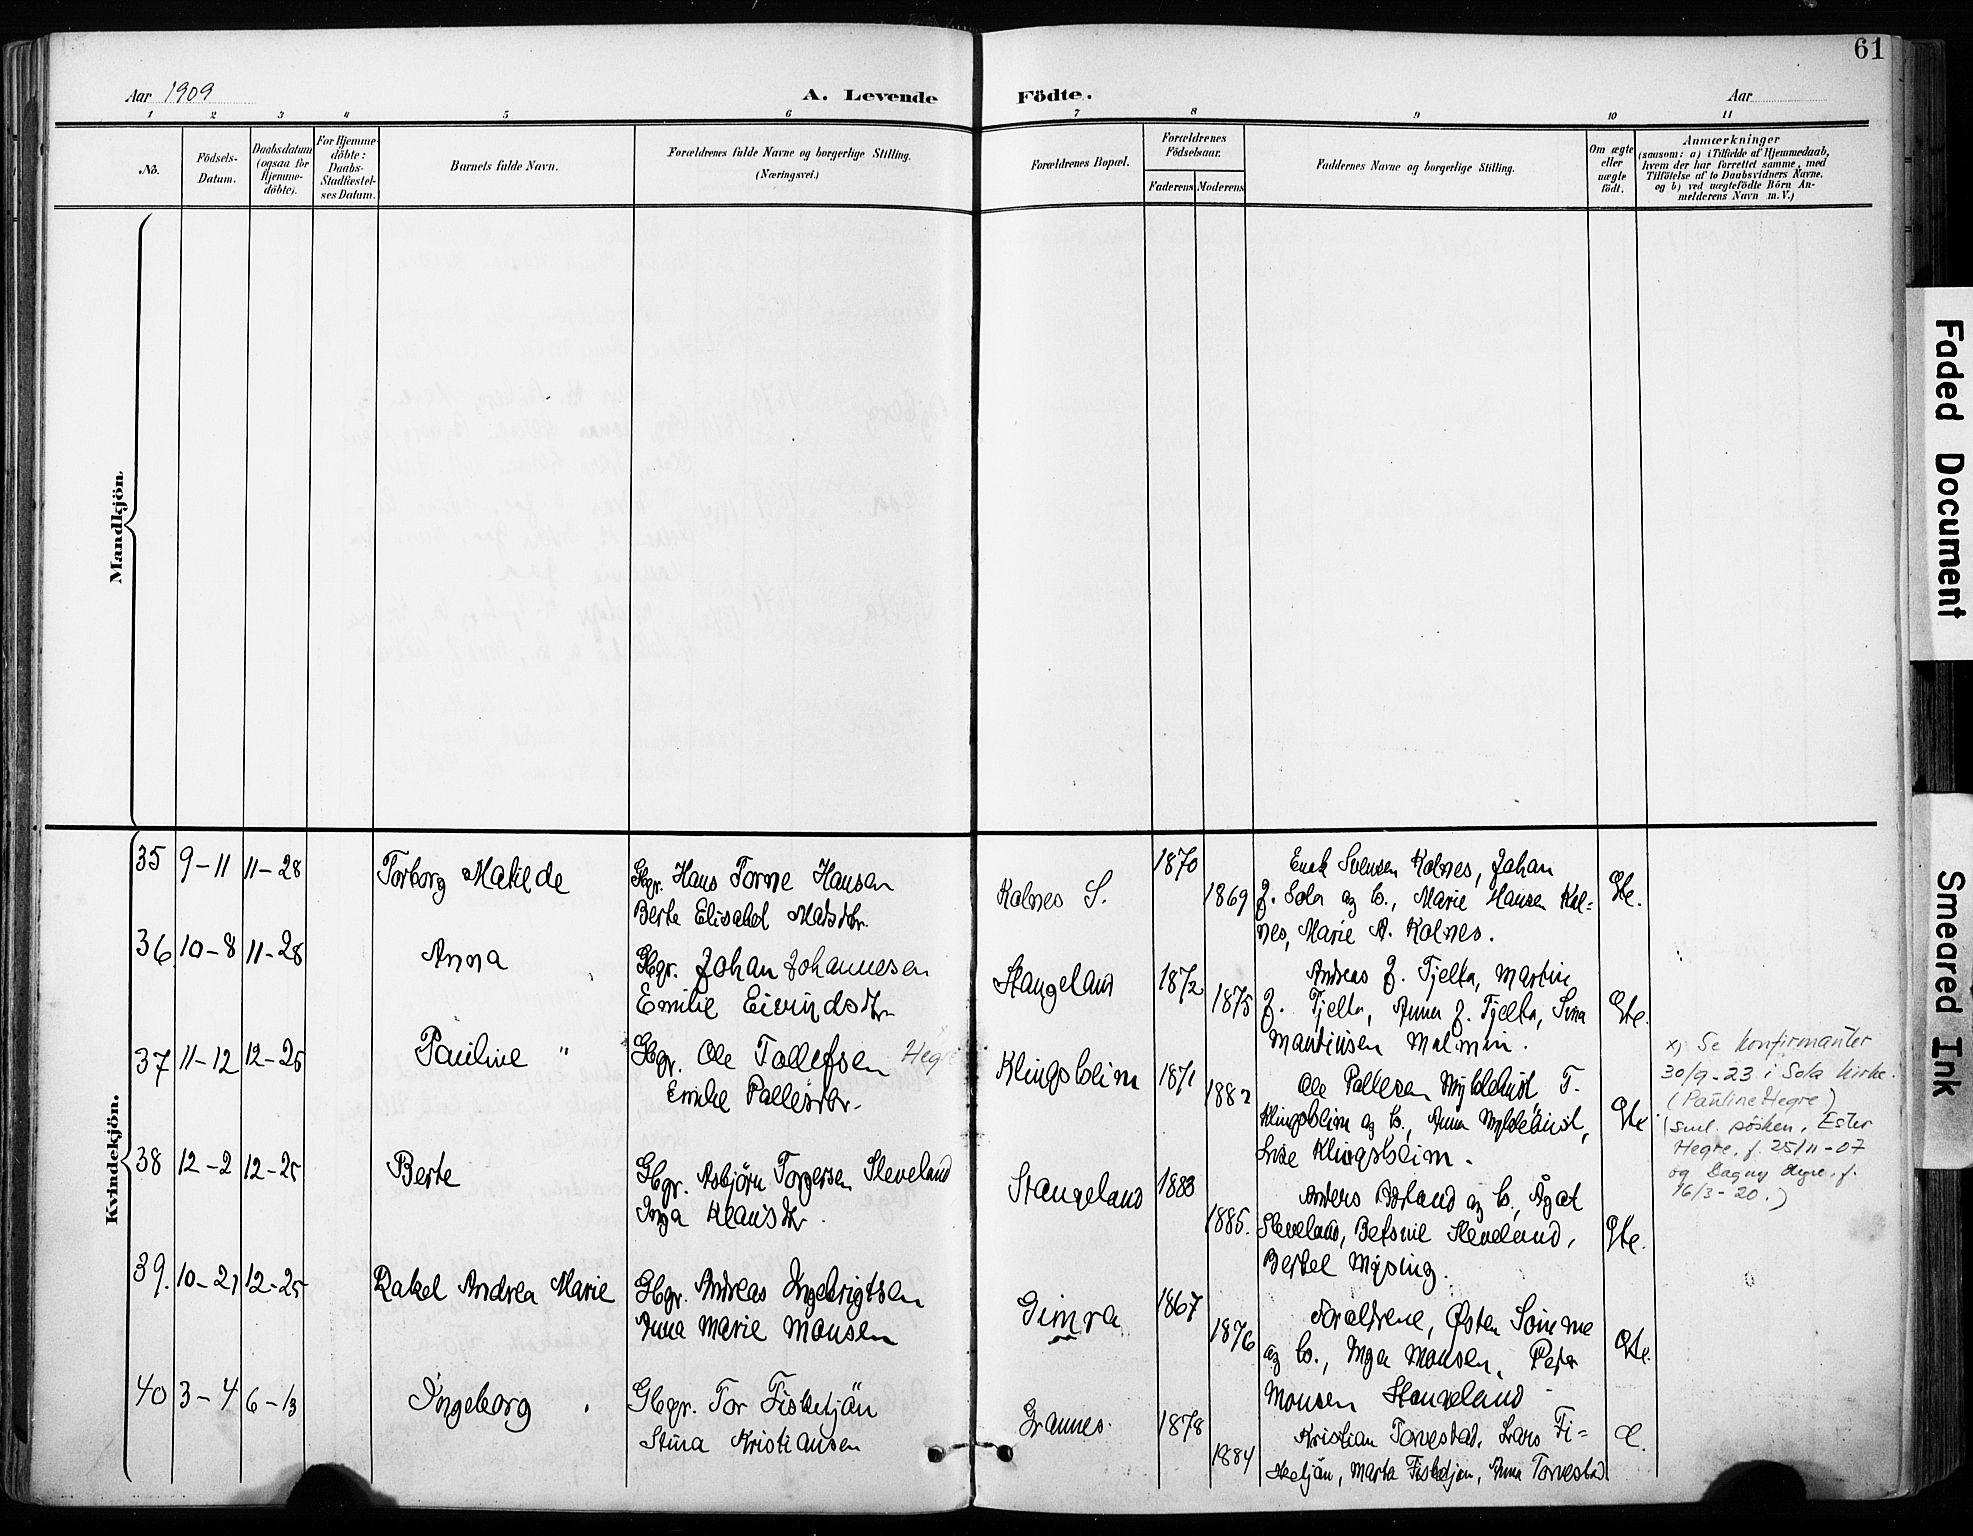 61
Aar 1909
A. Levende Födte.
Aar
1 2 3 4 5 6 7 8 9 10 11
No.
Födsels-Datum.
Daabsdatum (ogsaa for Hjemme-döbte).
For Hjemme-döbte: Daabs-Stadfæstel-ses Datum.
Barnets fulde Navn.
Forældrenes fulde Navne og borgerlige Stilling. (Næringsvei.)
Forældrenes Bopæl.
Forældrenes Födselsaar.
Faderens Moderens
Faddernes Navne og borgerlige Stilling.
Om ægte eller uægte födt.
Anmærkninger
(saasom: a) i Tilfælde af Hjemmedaab, hvem der har forrettet samme, med Tilföielse af to Daabsvidners Navne, og b) ved uægtefödte Börn Anmelderens Navn m. V.)
Mandkjön.
Kvindekjön.
35 9-11 11-28 Torborg Matilde
Gbgr. Hans Torne Hansen
Berte Elisabet Matsdtr.
Kolnes S. 1870 1869
Svensen Kolnes, Johan
J. Sola og C., Marie Hansen Kol=
nes, Marie A. Kolnes.
Gte.
36. 10-8 11-28 Anna
Gbgr. Johan Johannesen
Emilie Eivindsdtr.
Stangeland 1872 1875
Andreas J. Tjelta, Martin
J. Tjelta, Anna J. Tjelta, Sina
Martinsen Malmin.
Gte.
37 11-12 12-25 Pauline "
Gbgr. Ole Tollefsen Hegre
Emilie Pallesdtr.
Klingsheim 1871 1882
Ole Pallesen T.
Klingsheim og C., Anna
Klingsheim.
Gte
x) Se konfirmanter
30/9-23 i Sola kirke.
(Pauline Hegre)
(sml. søsken, Ester
Hegre, f. 25/11-07
og Dagny Hegre, f.
16/3-20.)
38 12-2 12-25 Berte
Gbgr. Asbjörn Torgersen Sleveland
Inga Klausdtr.
Stangeland 1883 1885.
Anders og C., Ågot
Sleveland, Betsine Sleveland,
Bertel Mysing.
Gte.
39. 10-21 12-25 Rakel Andrea Marie
Gbgr. Andreas Ingebrigtsen
Anna Marie Monsen
Gimra 1867 1876
Forældrene, Østen Sömme
og C., Inga Monsen, Peter
Monsen Stangeland
Gte.
40 3-4 6-13 Ingeborg
Gbgr. Tor Fisketjön
Stina Kristiansen
Grannes. 1878 1884
Kristian Torvestad, Lars Fi=
sketjön, Marta Fisketjøn, Anna Torvestad
Faded Document
Smeared Ink